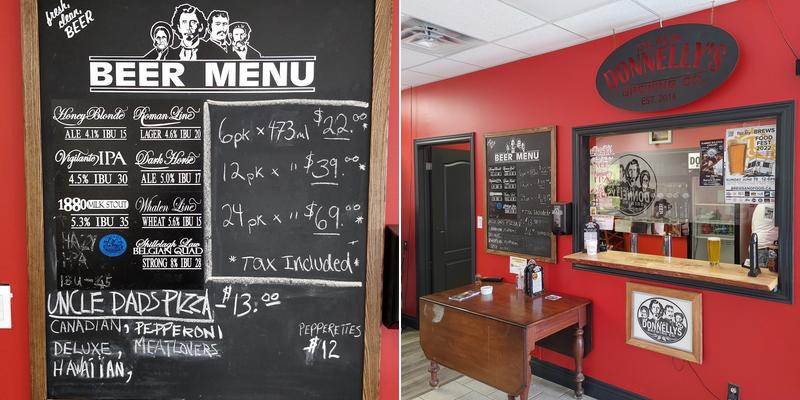 fresh,
clean,
BEER
BEER MENU
Honey Blonde
ALE 4.1% IBU 15
Roman Line
LAGER 4.6% IBU 20
Vigilante IPA
4.5% IBU 30
Dark Horse
ALE 5.0% IBU 17
1880 MILK STOUT
5.3% IBU 35
Whalen Line
WHEAT 5.6% IBU 15
HAZY
IPA
IBU - 45
Shillelagh Law
BELGIAN QUAD
STRONG 8% IBU 28
6pk x 473ml $22.00 *
12pk x " $39.00 *
24pk x " $69.00 *
*Tax Included*
UNCLE DADS PIZZA $13.00
CANADIAN, PEPPERONI
DELUXE, MEATLOVERS
HAWAIIAN,
PEPPERETTES
$12
DONNELLY'S
BREWING CO.
EST. 2016
BEER MENU
BREWS
FOOD
FEST
2022
DONNELLY'S